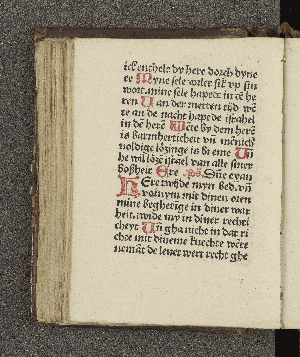 ick entholt dy here dorch dyne
ee Myne sele vorlet sik vp sin
wort. mine sele hapett in dē he
ren Uan der metten tijd wē
te an de nacht hapede israhel
in dē herē Wēte by dem herē
is barmherticheit vn̄ mēnich
uoldige lözinge is bi eme Un̄
he wil lözē israel van alle siner
bosheit Ere ps. Dn̄e exau
HEre twijde myn bed. vn̄
vornym mit dinen oren
mine begheringe in diner war
heit. twide my in diner rechti
cheyt Un̄ gha nicht in dat ri
chte mit dineme knechte wēte
nemāt de leuet wert recht ghe